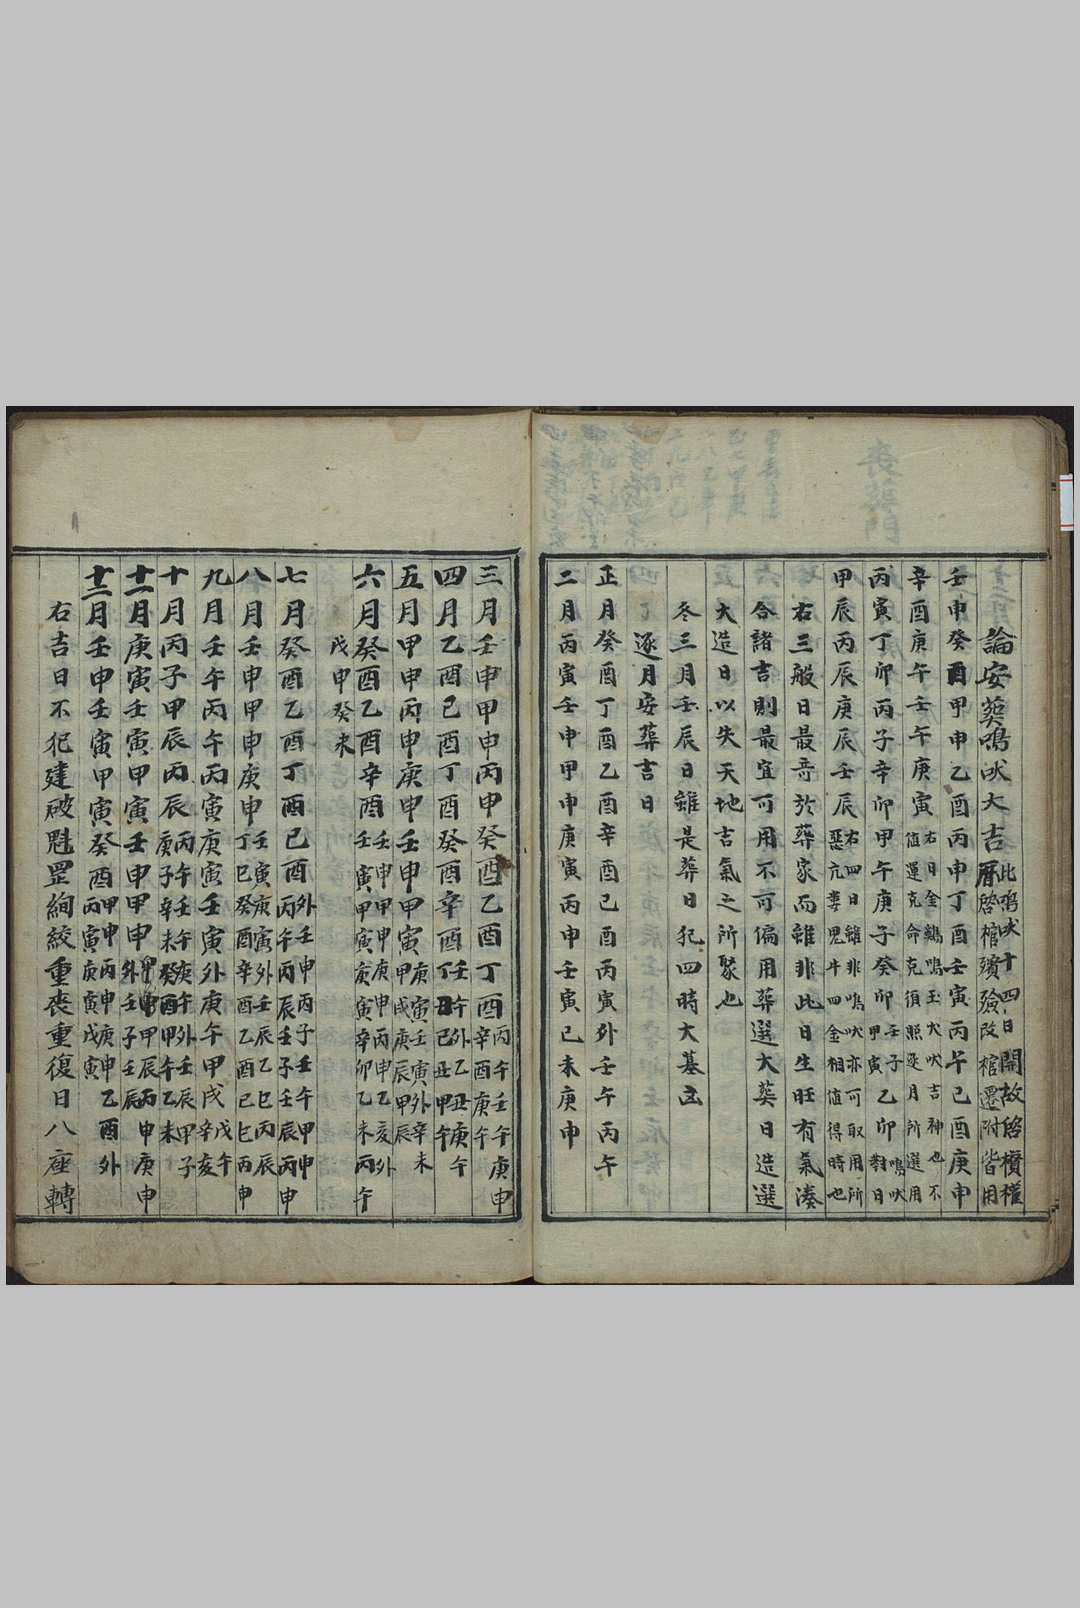 論安葬鳴吠大吉曆此鳴吠十四日開故啓欑權啓棺殯殮改棺遷附皆用
壬申癸酉甲申乙酉丙申丁酉壬寅丙午己酉庚申
辛酉庚午壬午庚寅右日金鷄鳴玉犬吠吉神也不值運克命克須照逐月所選用
丙寅丁卯丙子辛卯甲午庚子癸卯壬子甲寅乙卯鳴吠對日
甲辰丙辰庚辰壬辰右四日雖非鳴吠亦可取用所惡亢婁鬼牛四金相值得時也
右三般日最竒於葬家而雖非此日生旺有氣湊
合諸吉則最宜可用不可偏用葬選大葬日造選
大造日以失天地吉氣之所聚也
冬三月壬辰日雖是葬日犯四時大墓凶
逐月安葬吉日
正月癸酉丁酉乙酉辛酉己酉丙寅外壬午丙午
二月丙寅壬申甲申庚寅丙申壬寅己未庚申
三月壬申甲申丙申癸酉乙酉丁酉丙午壬午庚申辛酉庚午
四月乙酉己酉丁酉癸酉辛酉壬午外乙丑庚午丁丑己丑甲午
五月甲申丙申庚申壬申甲寅庚寅壬寅外辛未甲戌庚辰甲辰
六月癸酉乙酉辛酉壬申甲申庚申丙申乙亥外壬寅甲寅庚寅辛卯乙未丙午
戊申癸未
七月癸酉乙酉丁酉己酉外壬申丙子壬午甲申丙午丙辰壬子壬辰丙申
八月壬申甲申庚申壬寅庚寅外壬辰乙巳丙辰丁巳癸酉辛酉乙酉己巳丙申
九月壬午丙午丙寅庚寅壬寅外庚午甲戌戊午辛亥
十月丙子甲辰丙辰丙午壬午庚午外壬辰甲子庚子辛未癸酉甲午乙未
十一月庚寅壬寅甲寅壬申甲申甲辰丙申庚申外壬子壬辰
十二月壬申壬寅甲寅癸酉甲申丙申庚申乙酉外丙寅庚寅戊寅
右吉日不犯建破魁罡絢絞重喪重復日八座轉